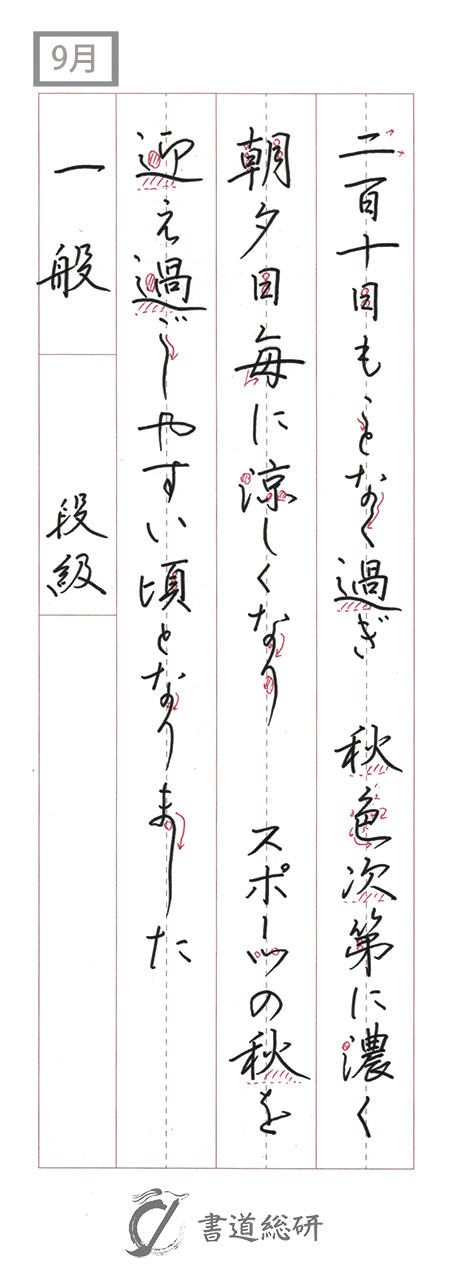 9月
二百十日もことなく過ぎ 秋色次第に濃く
朝夕日毎に涼しくなり スポーツの秋を
迎え過ごしやすい頃となりました
一般
段級
書道総研